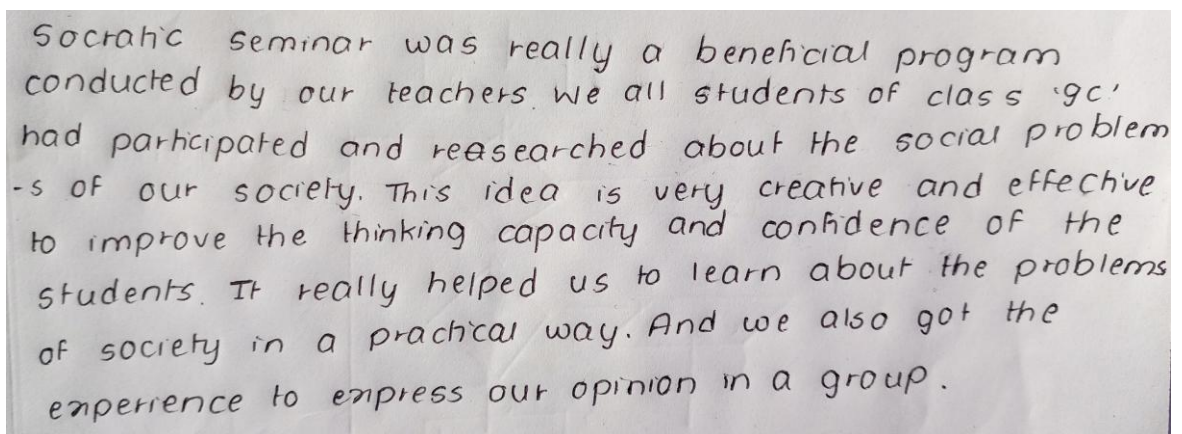 Socratic seminar was really a beneficial program
conducted by our teachers. We all students of class '9c'
had participated and reasearched about the social problem
-s of our society. This idea is very creative and effective
to improve the thinking capacity and confidence of the
students. It really helped us to learn about the problems
of society in a practical way. And we also got the
experience to express our opinion in a group.